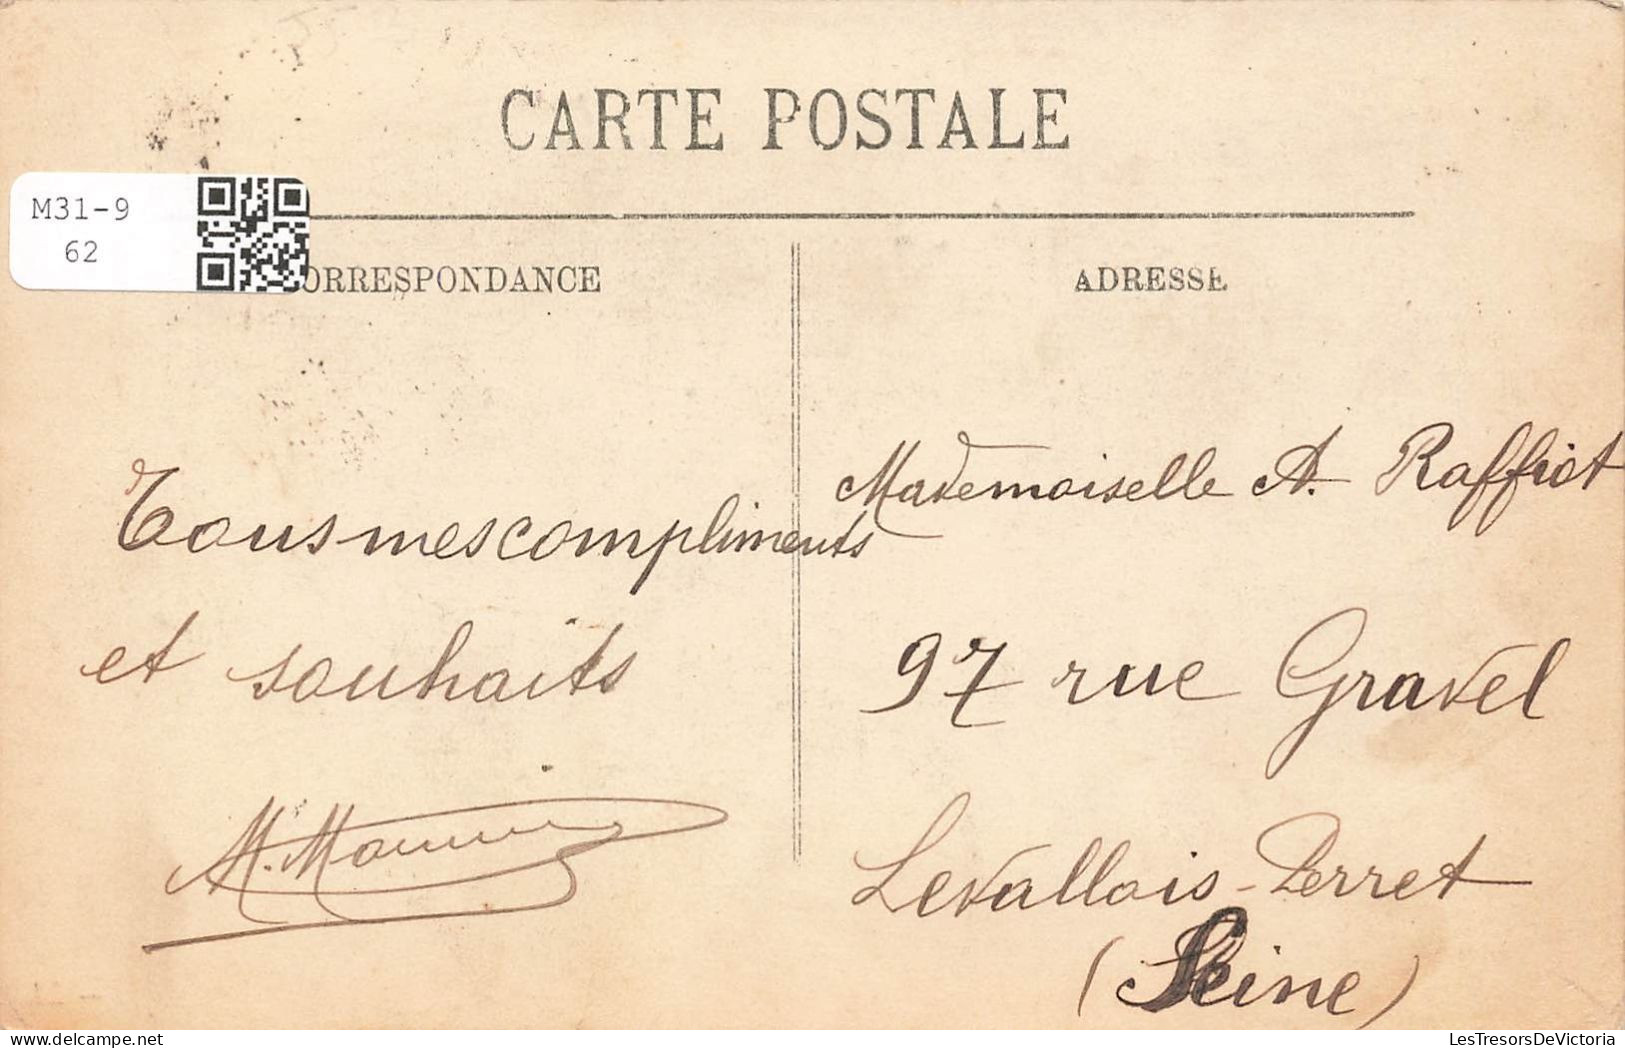 CARTE POSTALE
M31-9
62
ORRESPONDANCE
ADRESSE
Tous mes compliments
et souhaits
Mademoiselle A. Raffiot
97 rue Gravel
Levallois-Perret
(Seine)
LesTresorsDeVictoria